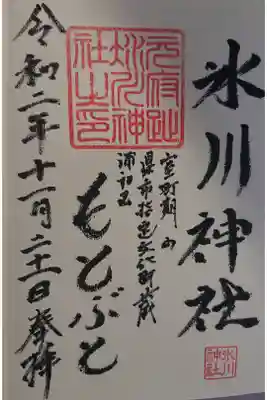 氷川神社
室町期の
県市指定文化財蔵
もとぶと
令和二年十一月二十一日奉拝
氷川神社